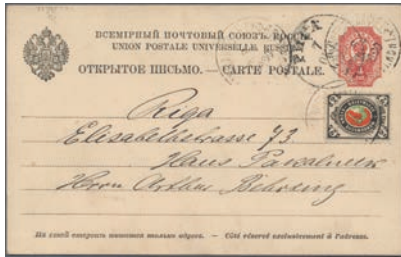 ВСЕМІРНЫЙ ПОЧТОВЫЙ СОЮЗЪ. РОССІЯ
UNION POSTALE UNIVERSELLE. RUSSIE
ОТКРЫТОЕ ПИСЬМО. — CARTE POSTALE.
Riga
Elisabethstrasse 73.
Haus
Herrn Arthur
На этой сторонѣ пишется только адресъ. — Côté réservé exclusivement à l'adresse.